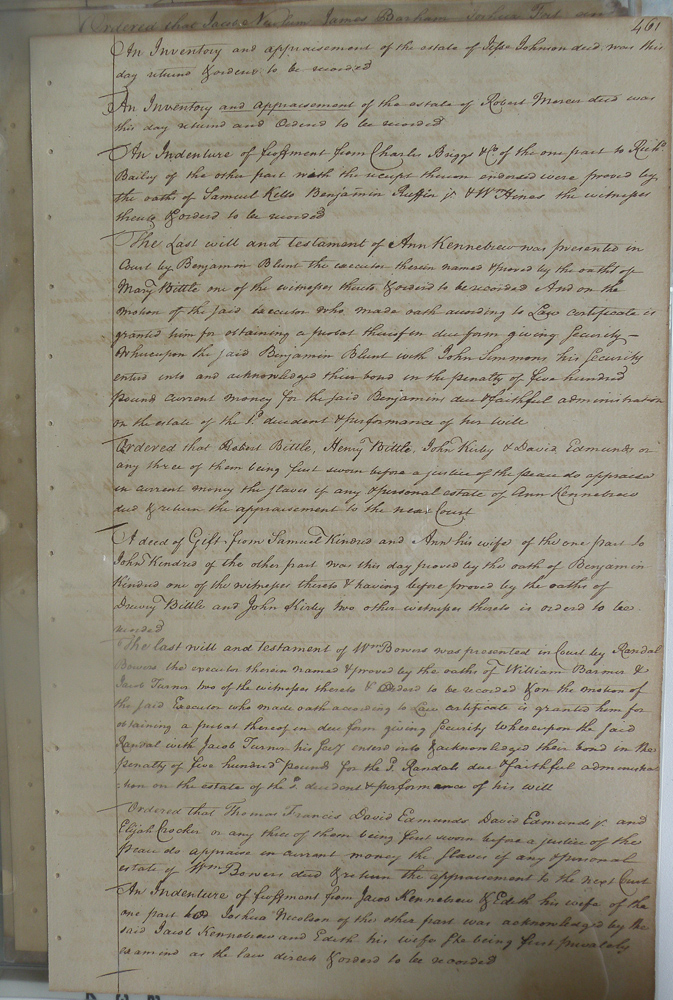 Ordered that James Barham Joshua
461
An Inventory and appraisement of the estate of Jesse Johnson decd was this
day returnd & orderd to be recorded
An Inventory and appraisement of the estate of Robert Mercer decd was
this day returnd and Orderd to be recorded
An Indenture of feoffment from Charles Briggs & Co of the one part to Richd
Bailey of the other part with the receipt thereon endorsed were proved by
the oaths of Samuel Kello Benjamin Ruffin jr & Wm Hines the witnesses
thereto & orderd to be recorded
The Last will and testament of Ann Kennebrew was presented in
Court by Benjamin Blunt the executor therein named & proved by the oaths of
Mary Bittle one of the witnesses thereto & orderd to be recorded And on the
motion of the said Executor who made oath according to Law certificate is
granted him for obtaining a probat thereof in due form giving Security —
Whereupon the said Benjamin Blunt with John Simmons his Security
enterd into and acknowledged their bond in the penalty of five hundred
pound current money for the said Benjamins due & faithful administration
on the estate of the sd decedent & performance of her will
Ordered that Robert Bittle, Henry Bittle, John Kirby & David Edmunds or
any three of them being first sworn before a justice of the peace do appraise
in current money the slaves if any & personal estate of Ann Kennebrew
decd & return the appraisement to the next Court
A deed of Gift from Samuel Kindred and Ann his wife of the one part to
John Kindred of the other part was this day proved by the oath of Benjamin
Kindred one of the witnesses thereto & having before proved by the oaths of
Drewry Bittle and John Kirby two other witnesses thereto is orderd to be
recorded
The last will and testament of Wm Bowers was presented in Court by Randal
Bowers the executor therein named & proved by the oaths of William Barmer &
Jacob Turner two of the witnesses thereto & Orderd to be recorded & on the motion of
the said Executor who made oath according to Law certificate is granted him for
obtaining a probat thereof in due form giving Security whereupon the said
Randal with Jacob Turner his Secy enterd into & acknowledged their bond in the
penalty of five hundred pounds for the sd Randals due & faithful administra
tion on the estate of the sd decedent & performance of his will
Ordered that Thomas Francis David Edmunds David Edmunds jr and
Elijah Crocker or any three of them being first sworn before a justice of the
peace do appraise in current money the slaves if any & personal
estate of Wm Bowers decd & return the appraisement to the next Court
An Indenture of feoffment from Jacob Kennebrew & Edith his wife of the
one part to Joshua Nicolson of the other part was acknowledged by the
said Jacob Kennebrew and Edith his wife she being first privately
examined as the law directs & orderd to be recorded